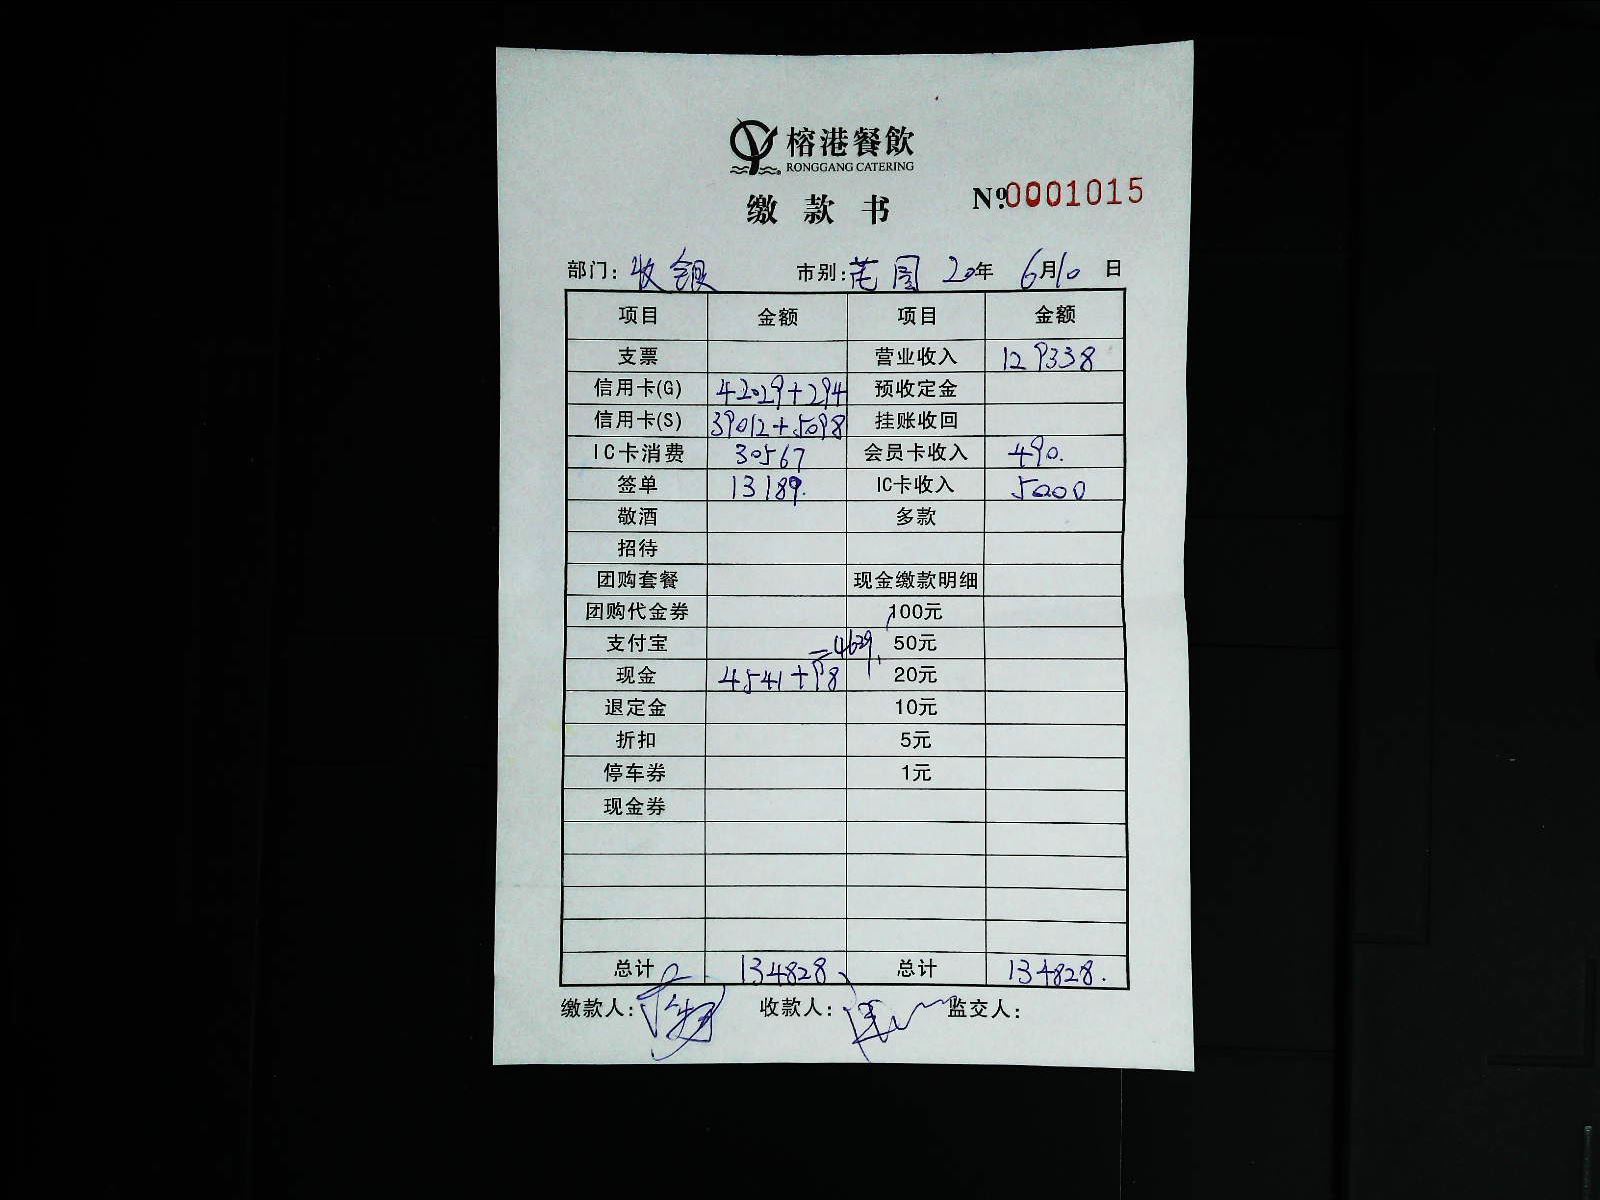 榕港餐飲
RONGGANG CATERING
缴款书 Nº.0001015
部门: 收银 市别: 20年 6月10日
项目 金额 项目 金额
支票 营业收入 129338
信用卡(G) 42029+294 预收定金
信用卡(S) 39012+5098 挂账收回
IC卡消费 30567 会员卡收入 490.
签单 13189. IC卡收入 5000
敬酒 多款
招待
团购套餐 现金缴款明细
团购代金券 100元
支付宝 =4639. 50元
现金 4541+98 20元
退定金 10元
折扣 5元
停车券 1元
现金券
总计 134828 总计 134828.
缴款人: 收款人: 监交人: